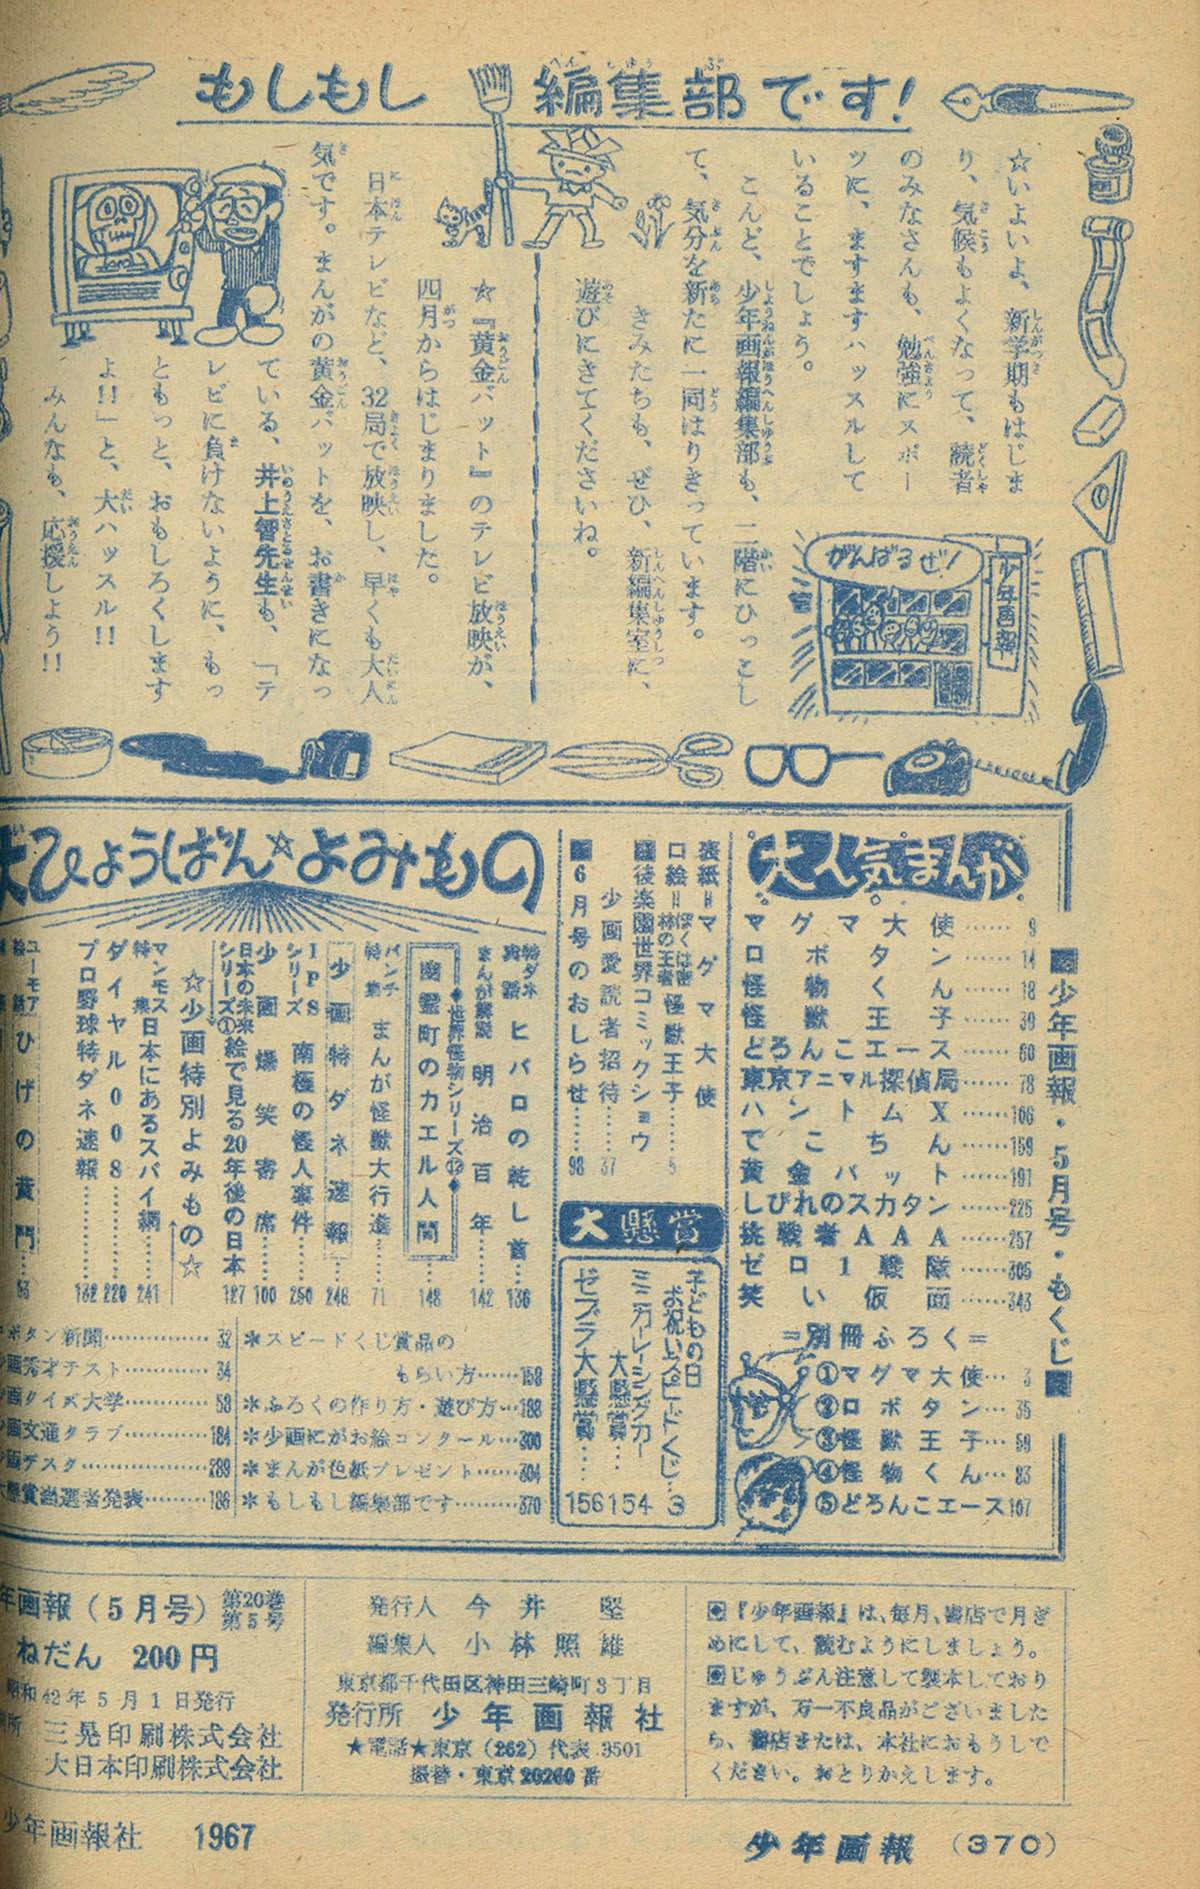 もしもし編集部です！
☆いよいよ、新学期もはじま
り、気候もよくなって、読者
のみなさんも、勉強にスポー
ツに、ますますハッスルして
いることでしょう。
こんど、少年画報編集部も、二階にひっこし
て、気分を新たに一同はりきっています。
きみたちも、ぜひ、新編集室に、
遊びにきてくださいね。
少年画報
がんばるぜ！
☆『黄金バット』のテレビ放映が、
四月からはじまりました。
日本テレビなど、32局で放映し、早くも大人
気です。まんがの黄金バットを、お書きになっ
ている、井上智先生も、「テ
レビに負けないように、もっ
ともっと、おもしろくします
よ!!」と、大ハッスル!!
みんなも、応援しよう!!
少年画報・5月号・もくじ
大人気まんが
マグマ大使……9
ロボタン……14
怪物くん……18
怪獣王子……39
どろんこエース……60
東京アニマル探偵局……78
ハントムX……106
でこちん……159
黄金バット……191
しびれのスカタン……225
挑戦者AAA……257
ゼロ1戦隊……305
笑い仮面……343
＝別冊ふろく＝
①マグマ大使…3
②ロボタン…35
③怪獣王子…59
④怪物くん…83
⑤どろんこエース107
表紙＝マグマ大使
口絵＝ぼくは密林の王者怪獣王子……5
後楽園世界コミックショウ
少画愛読者招待……37
6月号のおしらせ……98
大懸賞
子どもの日
お祝いスピードくじ…3
ミニカーレーシングカー
大懸賞…154
ゼブラ大懸賞…156
大ひょうばん☆よみもの
特ダネ実話 ヒバロの乾し首……136
まんが解説 明治百年……142
◆世界怪物シリーズ⑫◆
幽霊町のカエル人間……148
パンチ特集 まんが怪獣大行進……71
少画特ダネ速報……246
IPSシリーズ 南極の怪人事件……250
少画爆笑寄席……100
日本の未来シリーズ① 絵で見る20年後の日本 127
☆少画特別よみもの☆
マンモス特集 日本にあるスパイ網……241
ダイヤル008……220
プロ野球特ダネ速報……132
ユーモア ひげの黄門…
＊スピードくじ賞品の
もらい方……158
＊ふろくの作り方・遊び方…188
＊少画にがお絵コンクール…300
＊まんが色紙プレゼント……304
＊もしもし編集部です……370
ボタン新聞……32
画秀才テスト……34
画クイズ大学……58
画文通クラブ……184
画デスク……289
懸賞当選者発表……186
年画報（5月号）第20巻第5号
ねだん 200円
昭和42年5月1日発行
三晃印刷株式会社
大日本印刷株式会社
発行人 今井 堅
編集人 小林照雄
東京都千代田区神田三崎町3丁目
発行所 少年画報社
★電話★東京（262）代表3501
振替・東京20260番
『少年画報』は、毎月、書店で月ぎ
めにして、読むようにしましょう。
じゅうぶん注意して製本しており
ますが、万一不良品がございました
ら、書店または、本社におもうしで
ください。おとりかえします。
少年画報社 1967
少年画報（370）